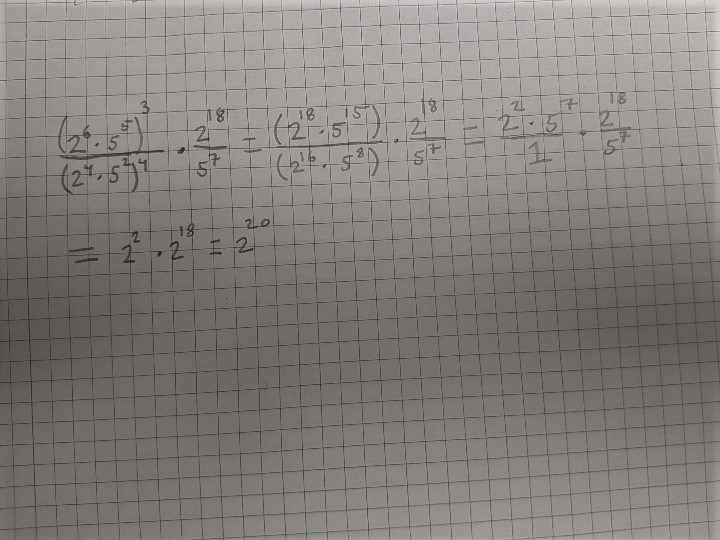 (2⁶ · 5⁵)³/(2⁴ · 5²)⁴ · 2¹⁸/5⁷ = (2¹⁸ · 5¹⁵)/(2¹⁶ · 5⁸) · 2¹⁸/5⁷ = 2² · 5⁷/1 · 2¹⁸/5⁷
= 2² · 2¹⁸ = 2²⁰